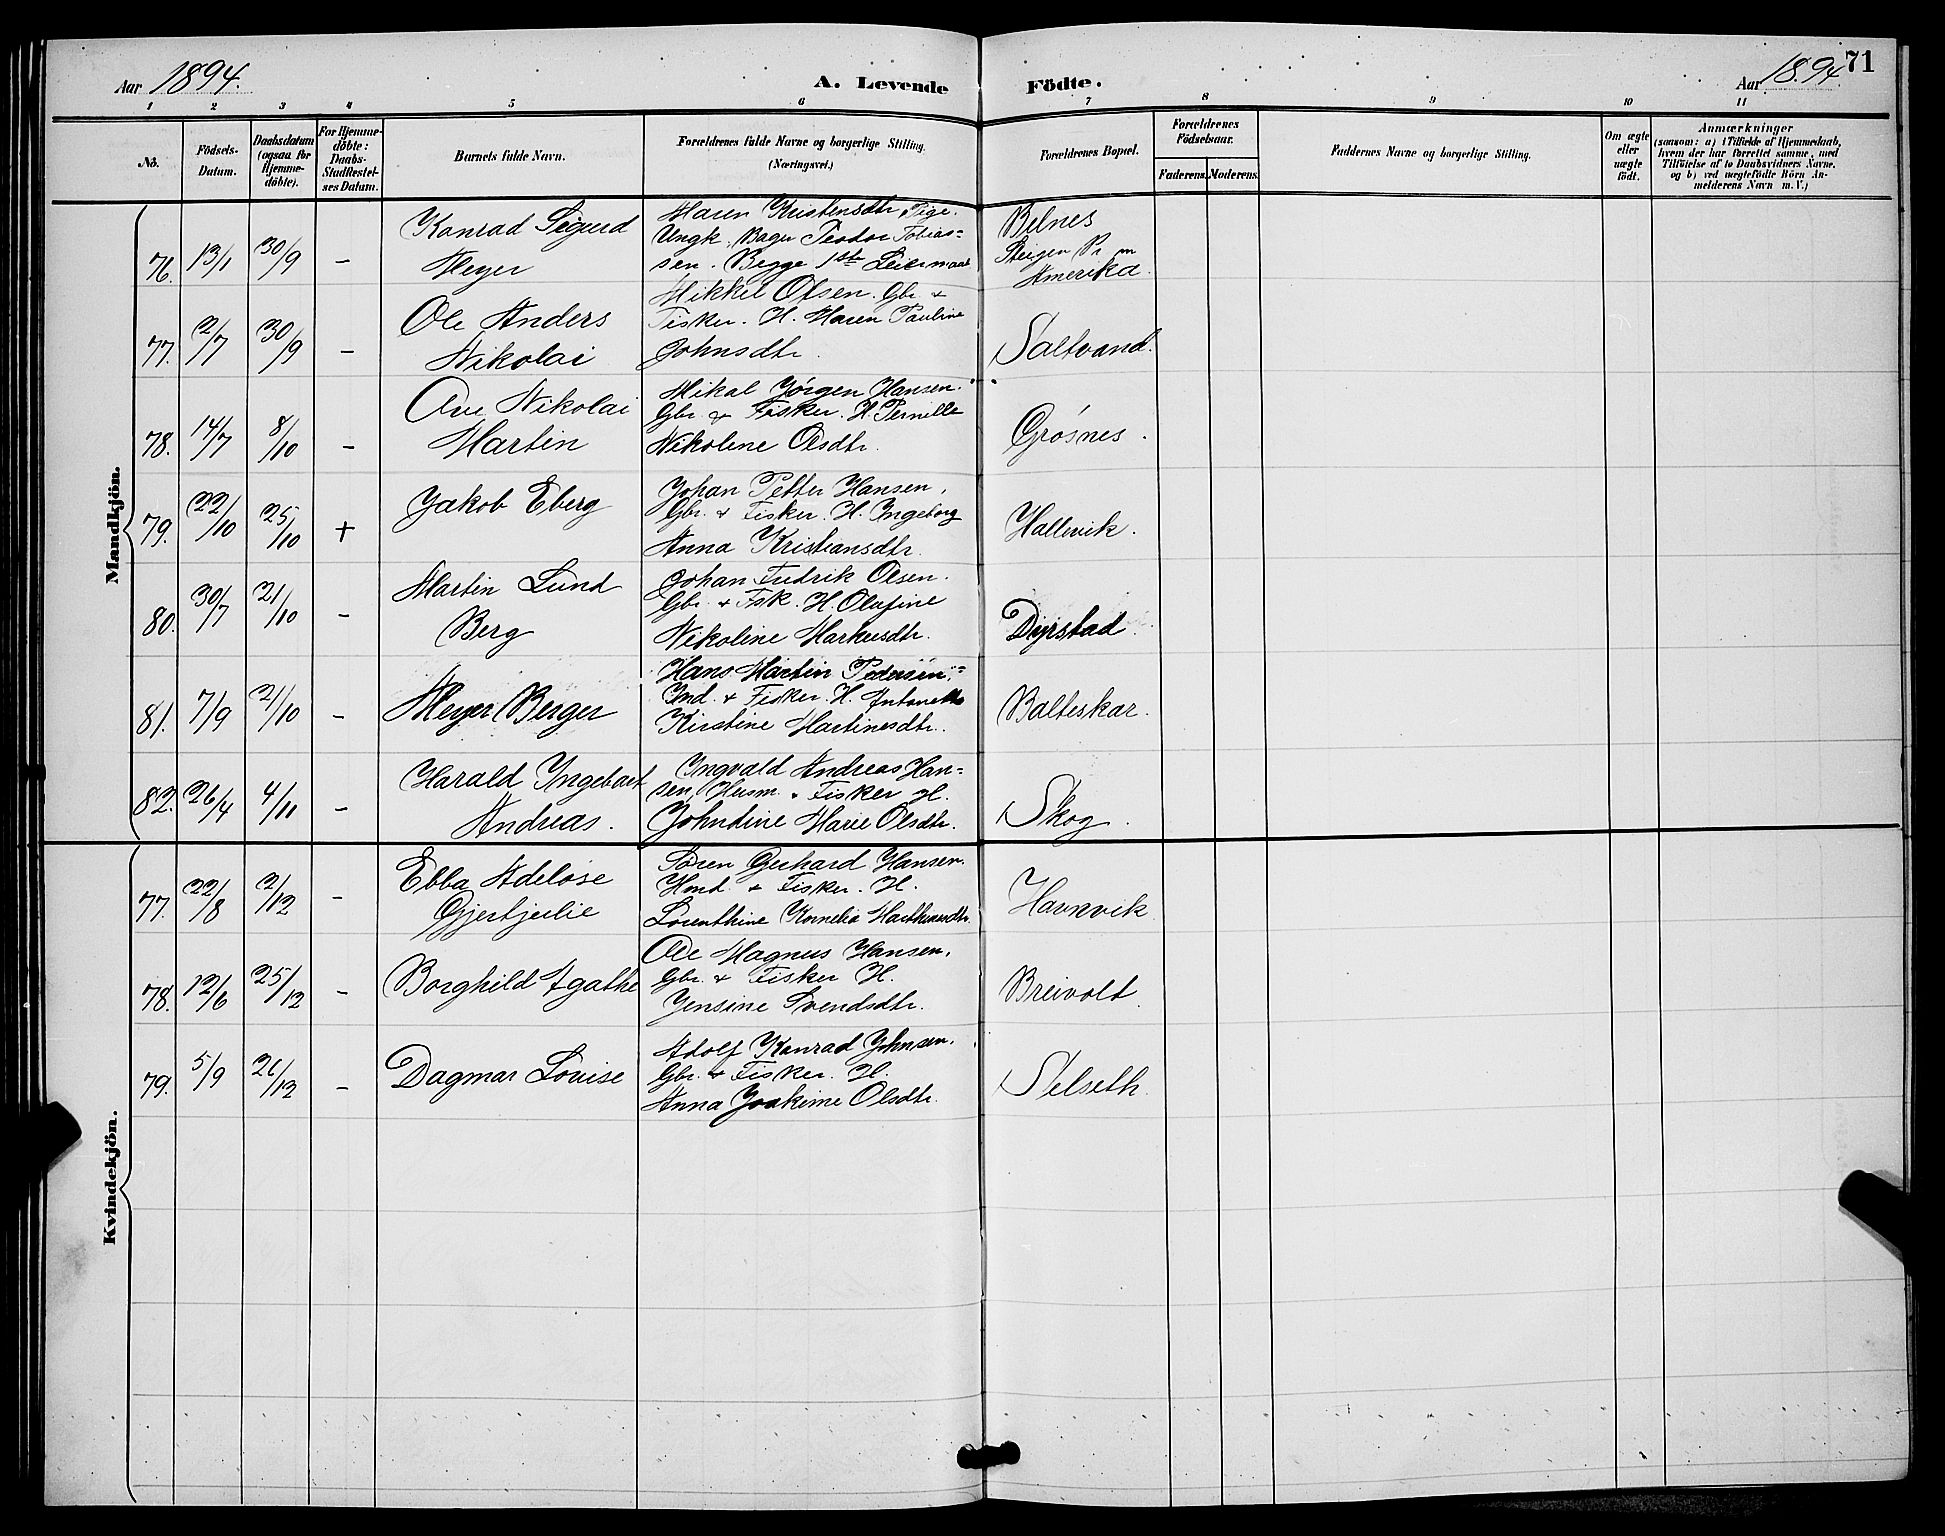 71
Aar 1894.
A. Levende Födte.
Aar 1894
1 2 3 4 5 6 7 8 9 10 11
No.
Födsels-Datum.
Daabsdatum (ogsaa for Hjemme-döbte).
For Hjemme-döbte: Daabs-Stadfæstel-ses Datum.
Barnets fulde Navn.
Forældrenes fulde Navne og borgerlige Stilling. (Næringsvei.)
Forældrenes Bopæl.
Forældrenes Födselsaar.
Faderens. Moderens.
Faddernes Navne og borgerlige Stilling.
Om ægte eller uægte födt.
Anmærkninger
(saasom: a) i Tilfælde af Hjemmedaab,
hvem der har forrettet samme, med
Tilföielse af to Daabsvidners Navne,
og b) ved uægtefödte Börn An-
melderens Navn m. V.)
Mandkjön.
76. 13/1 30/9 –
Konrad Sigurd
Meyer
Maren Kristensdtr, Pige.
Ungk. Bager Peodor Tobias=
sen. Begge 1ste Leiermaal
Belnes
Steigen Pr
Amerika.
77. 2/7 30/9 –
Ole Anders
Nikolai
Mikkel Olsen. Gbr +
Fisker. H. Maren Pauline
Johnsdtr.
Saltvand.
78. 14/7 8/10 –
Ove Nikolai
Martin
Mikal Jørgen Hansen.
Gbr. + Fisker. H. Pernille
Nikoline Olsdtr.
Grøsnes.
79. 22/10 25/10 +
Jakob Eberg
Johan Petter Hansen,
Gbr. + Fisker. H. Ingeborg
Anna Kristiansdtr.
Hallevik.
80. 30/7 21/10 –
Martin Lund
Berg
Johan Fredrik Olsen.
Gbr. + Fisk. H. Olufine
Nikoline Markusdtr.
Dyrstad.
81. 7/9 21/10 –
Meyer Berger
Hans Martin Pedersen,
Ind. + Fisker. H. Antonette
Kirstine Martinesdtr.
Balteskar.
82. 26/4 4/11 –
Harald Ingebart
Andreas.
Ingvald Andreas Han=
sen, Husm. + Fisker H.
Johndine Marie Olsdtr.
Skog.
Kvindekjön.
77. 22/8 2/12 –
Ebba Adeløse
Gjertjulie
Søren Gerhard Hansen.
+ Fisker. H.
Lorenthine Kornelia
Havnvik
78. 12/6 25/12 –
Borghild Agathe
Ole Magnus Hansen.
Gbr. + Fisker H.
Jensine Svendsdtr.
Breivolt
79. 5/9 26/12 –
Dagmar Lovise
Adolf Konrad Johnsen.
Gbr. + Fisker. H.
Anna Joakime Olsdtr.
Selseth.